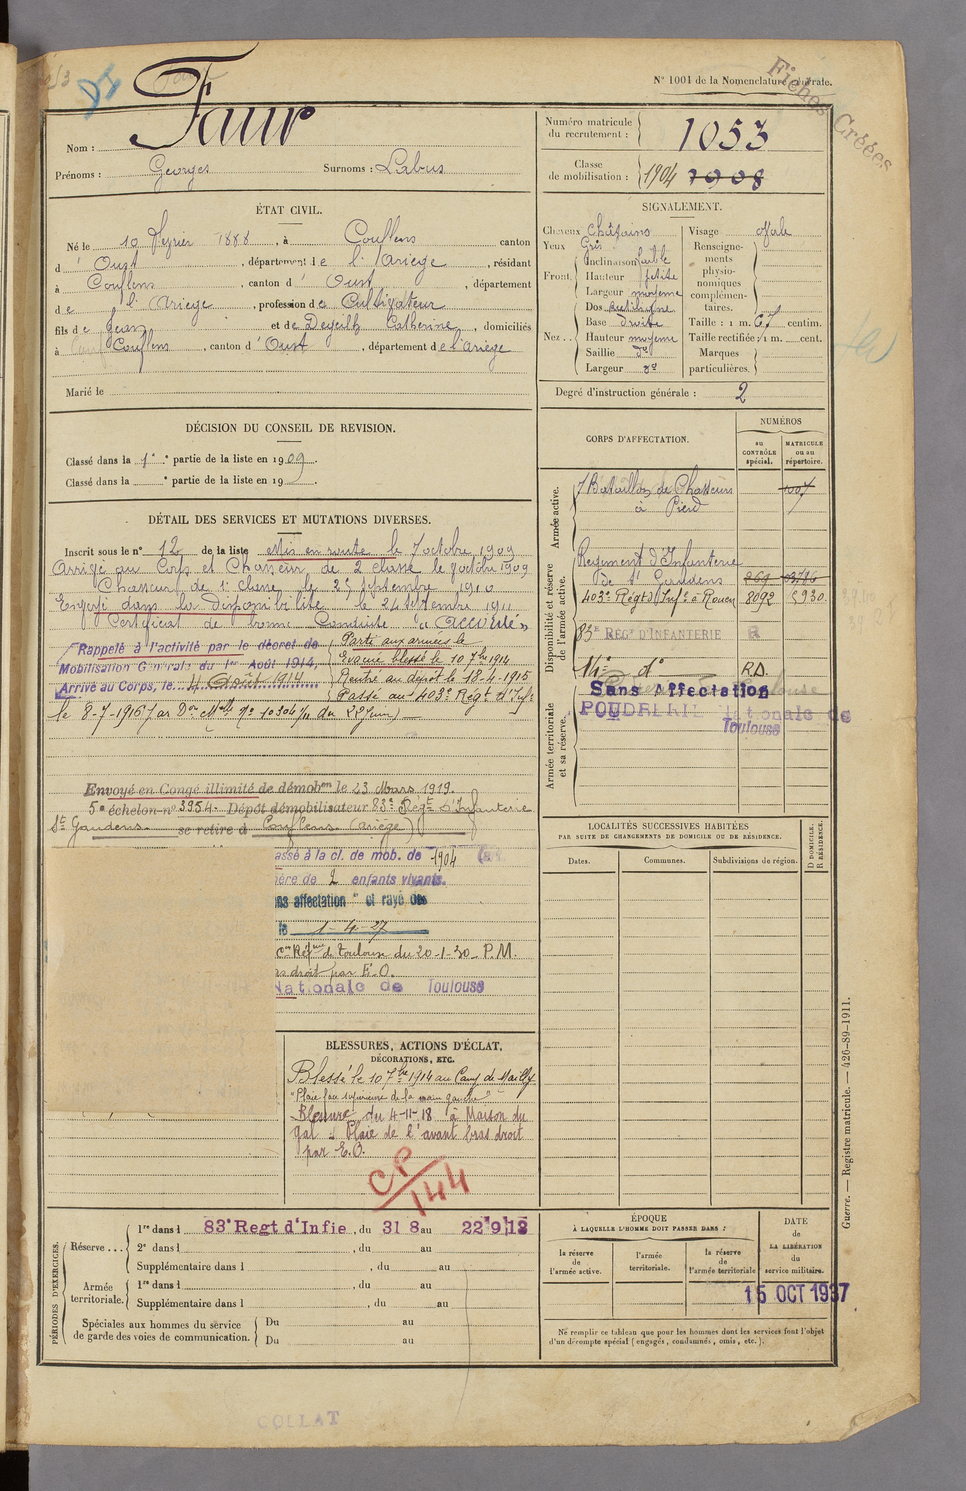 N° 1001 de la Nomenclature générale.
Fiches Créées
Nom : Faur
Prénoms : Georges Surnoms : Labus
Numéro matricule du recrutement : 1053
Classe de mobilisation : 1904 1908
ÉTAT CIVIL.
Né le 10 Février 1888, à Couflens canton
d'Oust, département de l'Ariège, résidant
à Couflens, canton d'Oust, département
de l'Ariège, profession de Cultivateur
fils de Jean et de Deyeilh Catherine, domiciliés
à Couflens, canton d'Oust, département de l'ariège
Marié le
SIGNALEMENT.
Cheveux Châtains
Yeux Gris
Front Inclinaison faible
Hauteur petite
Largeur moyenne
Nez Dos rectiligne
Base droite
Hauteur moyenne
Saillie do
Largeur do
Visage Ovale
Renseignements physionomiques complémentaires.
Taille : 1 m. 67 centim.
Taille rectifiée : 1 m. cent.
Marques particulières.
Degré d'instruction générale : 2
DÉCISION DU CONSEIL DE REVISION.
Classé dans la 1e partie de la liste en 1909.
Classé dans la e partie de la liste en 19 .
DÉTAIL DES SERVICES ET MUTATIONS DIVERSES.
Inscrit sous le n° 12 de la liste Mis en route le 7 octobre 1909
Arrivé au Corps et Chasseur de 2e classe le 9 octobre 1909
Chasseur de 1e classe le 25 septembre 1910
Envoyé dans la disponibilité le 24 septembre 1911
Certificat de bonne Conduite "Accordé"
Rappelé à l'activité par le décret de
Mobilisation Générale du 1er Août 1914,
Arrivé au Corps, le 4 Août 1914
Parti aux armées le
Evacué blessé le 10 7bre 1914
Rentré au dépôt le 18-4-1915
Passé au 403e Régt d'Infie
le 8-7-1915 par Don Melle No 10304 1/11 du 22 juin
Envoyé en Congé illimité de démobon le 23 Mars 1919.
5e échelon n° 3954 Dépôt démobilisateur 83e Régt d'Infanterie
St Gaudens se retire à Couflens (Ariège)
assé à la cl. de mob. de 1904
ère de 2 enfants vivants.
ns affectation" et rayé des
le 1-4-27
con Réfme de Toulouse du 20-1-30 P.M.
as droit par E.O.
Nationale de Toulouse
CORPS D'AFFECTATION.
NUMÉROS
au CONTRÔLE spécial.
MATRICULE ou au répertoire.
Armée active.
7 Bataillon de Chasseurs à Pied 1007
Disponibilité et réserve de l'armée active.
Régiment d'Infanterie
De St Gaudens
403e Régt d'Infie à Rouen 8092 5930
83e REGt D'INFANTERIE R
14e do RD.
Sans Affectation
POUDRERIE Nationale de Toulouse
Armée territoriale et sa réserve.
LOCALITÉS SUCCESSIVES HABITÉES
PAR SUITE DE CHANGEMENTS DE DOMICILE OU DE RÉSIDENCE.
Dates. Communes. Subdivisions de région. D DOMICILE. R RÉSIDENCE.
BLESSURES, ACTIONS D'ÉCLAT,
DÉCORATIONS, ETC.
Blessé le 10 7bre 1914 au Camp de Mailly
"Plaie face supérieure de la main gauche"
Blessure du 4-11-18 à Maison du
gal : Plaie de l'avant bras droit
par E.O.
CP/144
PÉRIODES D'EXERCICES.
Réserve 1re dans l 83e Regt d'Infie, du 31 8 au 22 9 12
2e dans l , du au
Supplémentaire dans l , du au
Armée territoriale. 1re dans l , du au
Supplémentaire dans l , du au
Spéciales aux hommes du service de garde des voies de communication. Du au
Du au
ÉPOQUE
À LAQUELLE L'HOMME DOIT PASSER DANS :
la réserve de l'armée active.
l'armée territoriale.
la réserve de l'armée territoriale
DATE de LA LIBÉRATION du service militaire.
15 OCT 1937
Ne remplir ce tableau que pour les hommes dont les services font l'objet
d'un décompte spécial (engagés, condamnés, omis, etc.).
Guerre. — Registre matricule. — 426-89-1911.
COLLAT